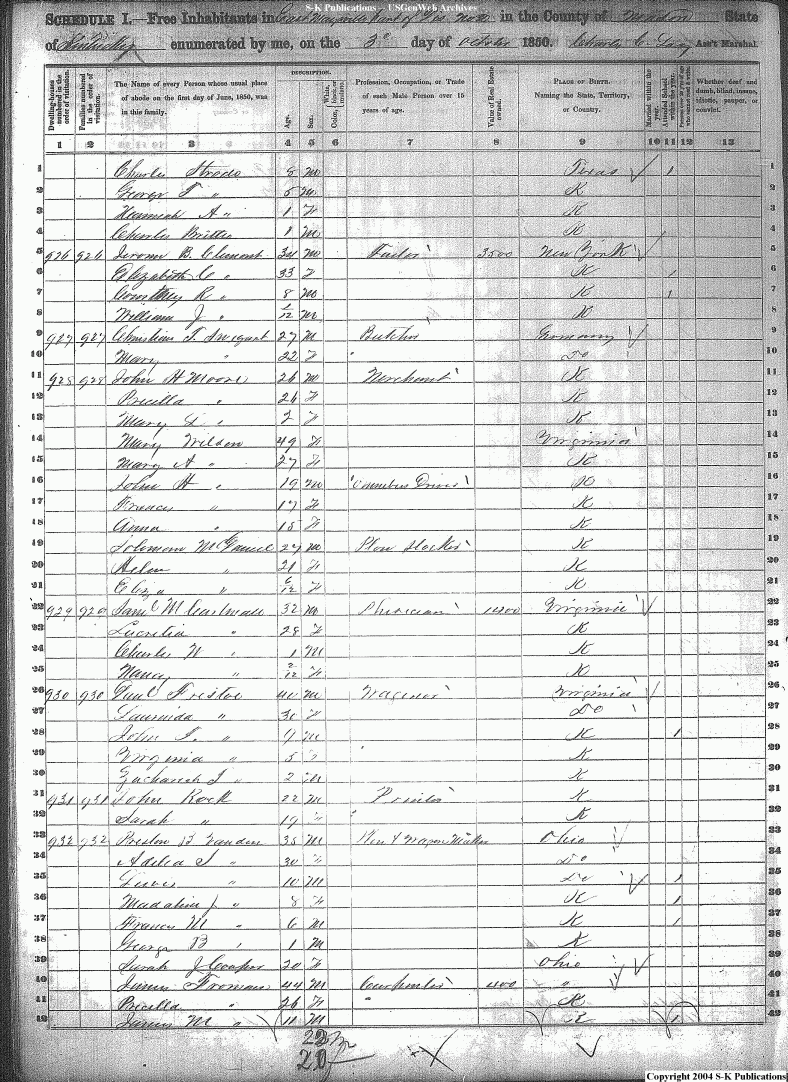 S-K Publications - USGenWeb Archives
SCHEDULE I.—Free Inhabitants in East Maysville Part of No. in the County of Mason State
of Kentucky enumerated by me, on the 3d day of October 1850. Charles C. Ass't Marshal.
Dwelling-houses numbered in the order of visitation. Families numbered in the order of visitation. The Name of every Person whose usual place of abode on the first day of June, 1850, was in this family. DESCRIPTION. Age. Sex. Color, White, black, or mulatto. Profession, Occupation, or Trade of each Male Person over 15 years of age. Value of Real Estate owned. PLACE OF BIRTH. Naming the State, Territory, or Country. Married within the year. Attended School within the year. Persons over 20 y'rs of age who cannot read & write. Whether deaf and dumb, blind, insane, idiotic, pauper, or convict.
1 2 3 4 5 6 7 8 9 10 11 12 13
1 Charles Strode 8 M Texas 1 1
2 George T " 5 M K 2
3 Hannah A " 1 F K 3
4 Charles Britter 1 M K 4
5 926 926 Jerom B. Clement 34 M 3500 New York 5
6 Elizabeth C " 33 F K 1 6
7 R " 8 M K 1 7
8 William J " /12 M K 8
9 927 927 Christian T. 27 M Butcher Germany 9
10 Mary " 22 F " Do 10
11 928 928 John H Moore 26 M Merchant K 11
12 Precilla " 26 F K 12
13 Mary L " 2 F K 13
14 Mary Wilson 49 F Virginia 14
15 Mary A " 27 F K 15
16 John H " 19 M Omnibus Driver K 16
17 Frances " 17 F K 17
18 Anna " 15 F K 18
19 Solomon McDaniel 27 M Plow Stocker K 19
20 Helen " 21 F K 20
21 Eliza " 6/12 F K 21
22 929 929 Saml W 32 M Phisician 1400 Virginia 22
23 Lucretia " 28 F K 23
24 Charles W " 1 M K 24
25 Nancy " 2/12 F K 25
26 930 930 Paul 40 M Wagoner Virginia 26
27 " 30 F Do 27
28 John T. " 9 M K 1 28
29 Virginia " 5 F K 29
30 Zachariah T " 2 M K 30
31 931 931 John Rock 22 M Printer K 31
32 Sarah " 19 F " K 32
33 932 932 Preston B Vanden 35 M & Wagon Maker Ohio 33
34 Adelia S " 30 F Do 34
35 Lewis " 10 M Do 1 35
36 Madaline J " 8 F K 1 36
37 Francis M " 6 M K 1 37
38 George B " 1 M K 38
39 Sarah J Cooper 20 F Ohio 39
40 James Froman 44 M Carpenter 400 " 40
41 Precilla " 26 F " K 41
42 James M " 10 M K 1 42
22 M
20 F
Copyright 2004 S-K Publications